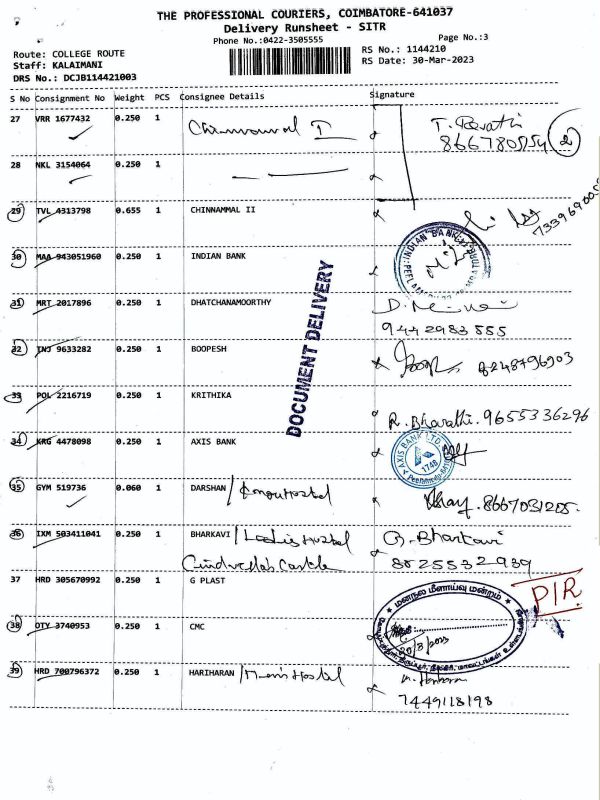 THE PROFESSIONAL COURIERS, COIMBATORE-641037
Delivery Runsheet - SITR
Phone No.:0422-3505555
Page No.:3
Route: COLLEGE ROUTE
RS No.: 1144210
Staff: KALAIMANI
RS Date: 30-Mar-2023
DRS No.: DCJB114421003
S No Consignment No Weight PCS Consignee Details Signature
27 VRR 1677432 0.250 1
28 NKL 3154064 0.250 1
29 TVL 4313798 0.655 1 CHINNAMMAL II
30 MAA 943051960 0.250 1 INDIAN BANK
31 MRT 2017896 0.250 1 DHATCHANAMOORTHY
9442983555
32 TNJ 9633282 0.250 1 BOOPESH
8248796903
33 POL 2216719 0.250 1 KRITHIKA
R. Bharathi. 9655336296
34 KRG 4478098 0.250 1 AXIS BANK
AXIS BANK LTD.
35 GYM 519736 0.060 1 DARSHAN
8667031205
36 IXM 503411041 0.250 1 BHARKAVI / Ladies Hostel
8025532939
37 HRD 305670992 0.250 1 G PLAST
P/R
மனநல மீளாய்வு மன்றம்
38 OTY 3740953 0.250 1 CMC
39 HRD 700796372 0.250 1 HARIHARAN / Mens Hostel
7449118198
DOCUMENT DELIVERY